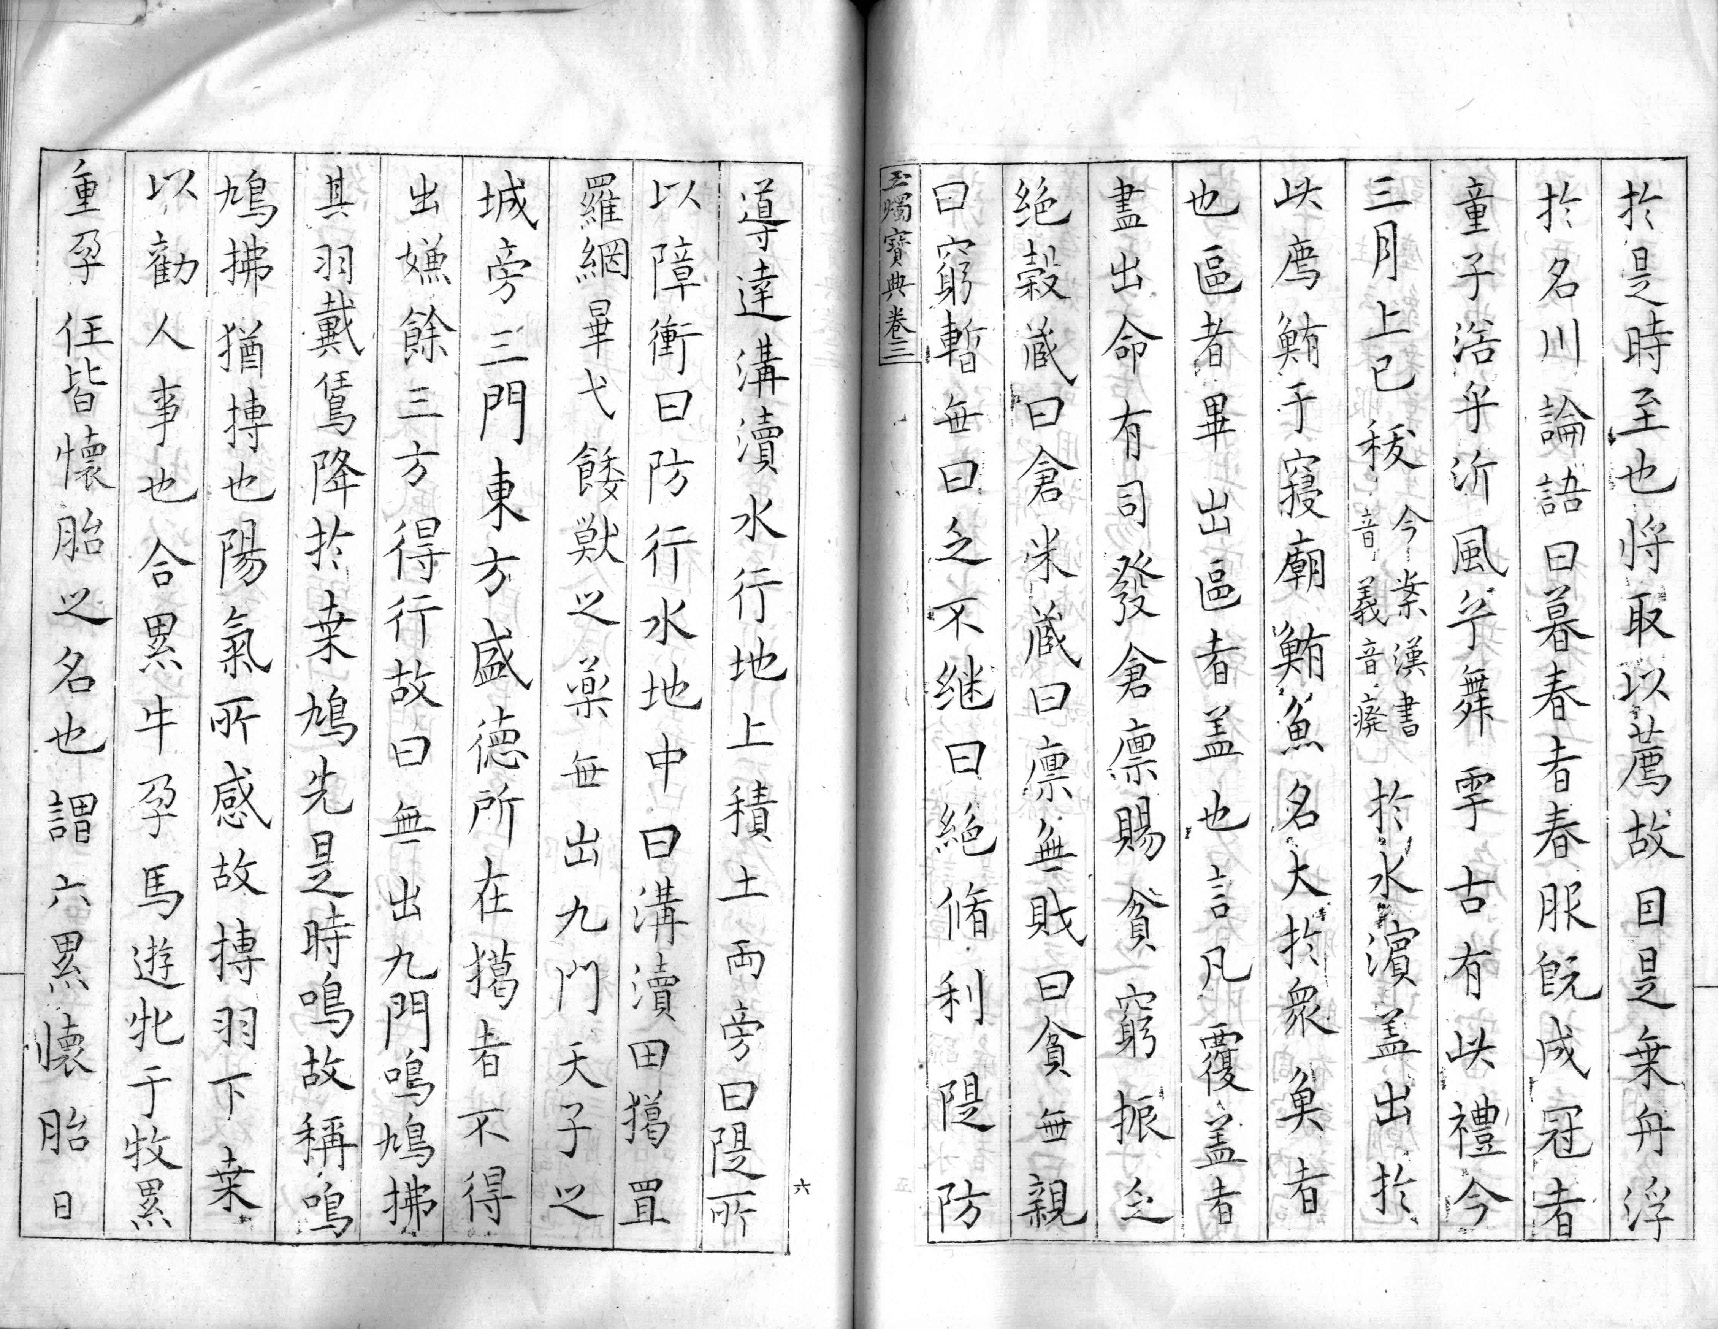 於是時至也将取以薦故因是乗舟浮
於名川論語曰暮春者春服既成冠者
童子浴乎沂風乎舞雩古有此禮今
三月上巳秡今案漢書音義音癈於水濱盖出於
此廌鮪于寝廟鮪魚名大於衆魚者
也區者畢出區者盖也言凡覆盖者
盡出命有司發倉廪賜貧窮振乏
絶穀蔵曰倉米蔵曰廪無財曰貧無親
曰窮暫無曰乏不継曰絶脩利隄防
玉燭寶典卷三
導達溝瀆水行地上積土両旁曰隄所
以障衝曰防行水地中曰溝瀆田獦罝
羅網畢弋餧獣之藥無出九門天子之
城旁三門東方盛徳所在獦者不得
出嫌餘三方得行故曰無出九門鳴鳩拂
其羽戴鵀降於桒鳩先是時鳴故稱鳴
鳩拂猶搏也陽氣所感故搏羽下桒
以勸人事也合累牛孕馬遊牝于牧累
重孕任皆懷胎之名也謂六累懷胎日
六